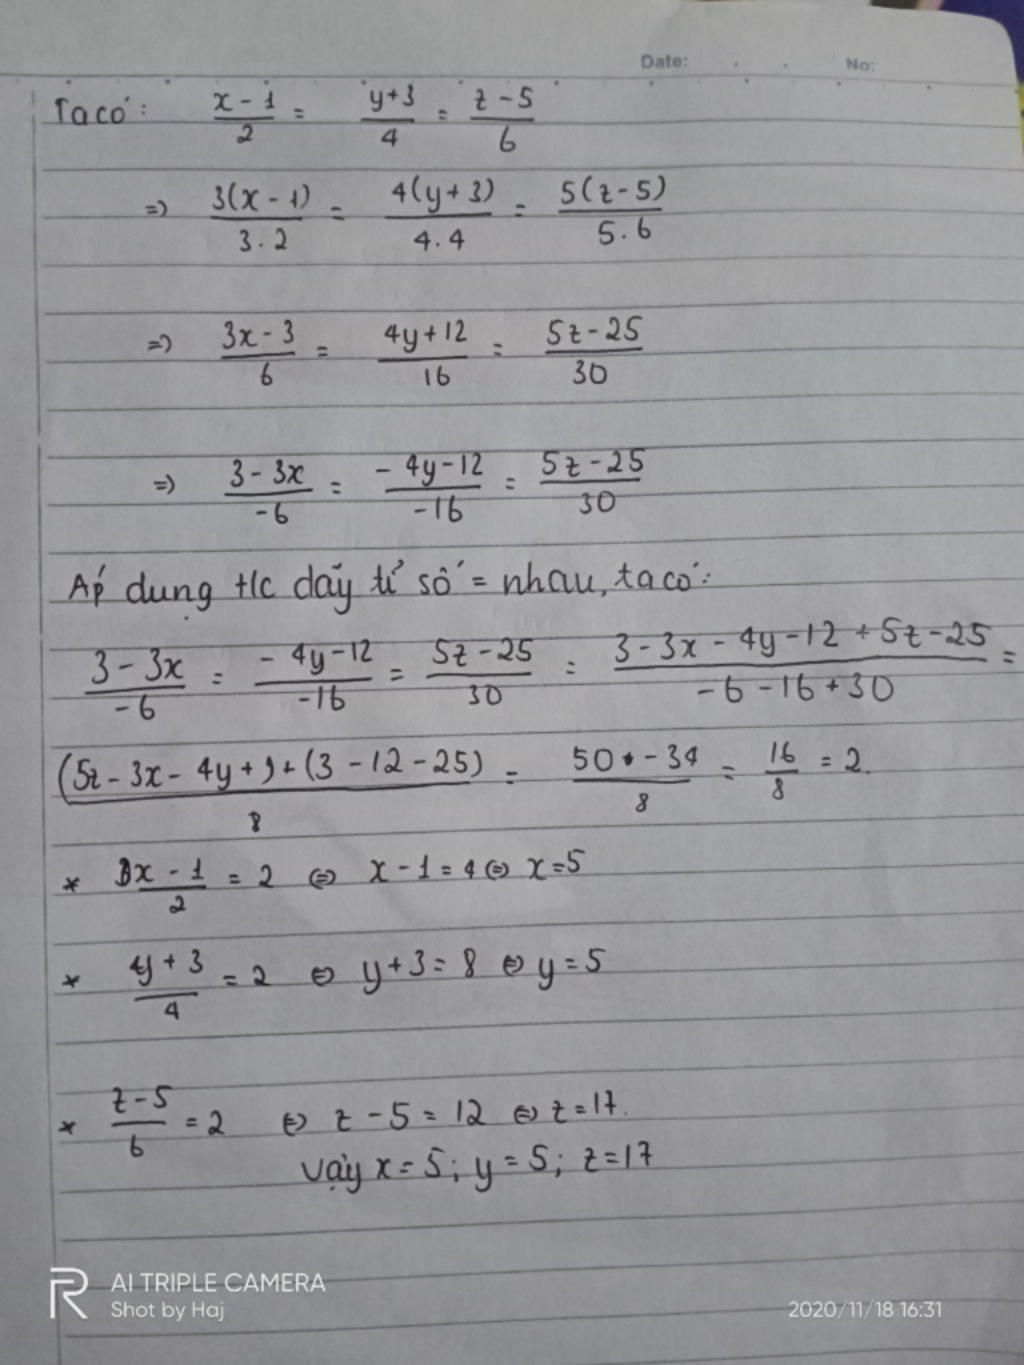 Date: No:
Ta có: x - 1 / 2 = y + 3 / 4 = z - 5 / 6
=> 3(x - 1) / 3.2 = 4(y + 3) / 4.4 = 5(z - 5) / 5.6
=> 3x - 3 / 6 = 4y + 12 / 16 = 5z - 25 / 30
=> 3 - 3x / -6 = - 4y - 12 / -16 = 5z - 25 / 30
Áp dụng t/c dãy tỉ số = nhau, ta có:
3 - 3x / -6 = - 4y - 12 / -16 = 5z - 25 / 30 = 3 - 3x - 4y - 12 + 5z - 25 / -6 - 16 + 30 =
(5z - 3x - 4y + ) + (3 - 12 - 25) / 8 = 50 + - 34 / 8 = 16 / 8 = 2.
* x - 1 / 2 = 2 <=> x - 1 = 4 <=> x = 5
* y + 3 / 4 = 2 <=> y + 3 = 8 <=> y = 5
* z - 5 / 6 = 2 <=> z - 5 = 12 <=> z = 17.
vậy x = 5; y = 5; z = 17
AI TRIPLE CAMERA
Shot by Haj
2020/11/18 16:31